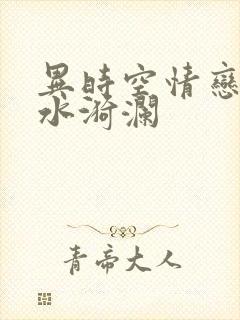 異時空情戀
水漪瀾
青帝大人